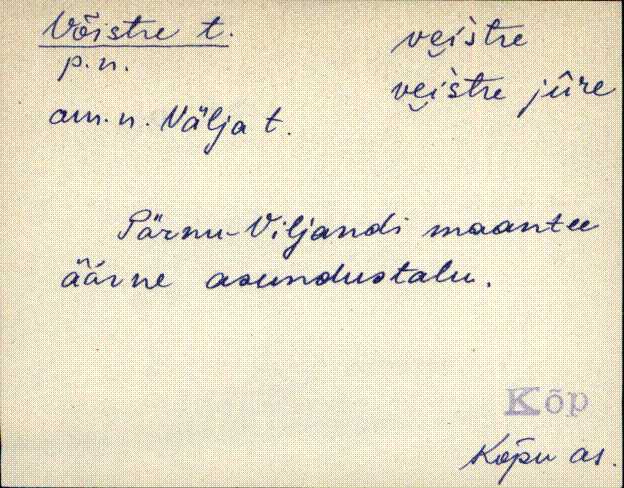 Võistre t.
p.n.
am.n. Välja t.
vei̯stre
vei̯stre jûre
Pärnu-Viljandi maantee
äärne asundustalu.
Kõp
Kõpu as.